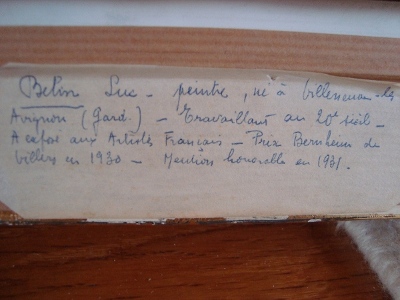 Belin Luc - peintre, né à Villeneuve-les
Avignon (Gard.) - Travaillant au 20e siècle -
A exposé aux Artistes Français - Prix Bernheim de
Villers en 1930 - Mention honorable en 1931.